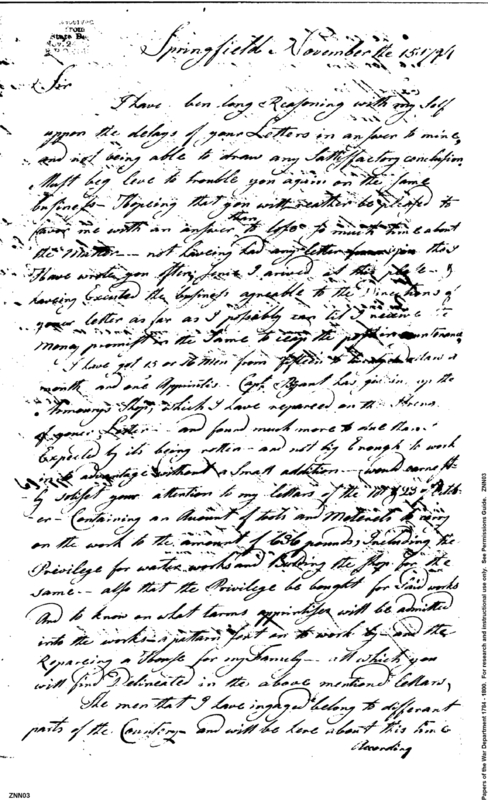 from
State De
Springfield November the 15 1794
Sir
I have ben long Reasoning with my Self
uppon the delays of your Letters in answer to mine,
and not being able to draw any Sattisfactory conclusion
Must beg leve to trouble you again on the same
business — Hopeing that you will reather be pleased to
favor me with an answer than to lose so much time about
the Matter — not haveing had any letter from you tho I
have wrote you often since I arived at this place — &
haveing Excuted the business agreable to the Directions of
your letter as far as I possibly can til I receive
money promist in the Same to keep the
I have got 15 or 16 Men from fifteen to dolars a
month and one Apprintis. Capt. Bryant has givin up the
Armourys Shop, which I have repareed on the
of youer Letter — and found much more to due than
Expected by its being rotten — and not big Enough to work
to advantage without a Small addition — would earnest-
ly solisit your attention to my letters of the 10t & 23d Octob-
er — Containing an Amount of tools and Matereals to carry
on the work to the amount of 636 pounds, Including the
Privilege for water works and Building the Shop for the
same — also that the Privilege be bought for Said works
And to know on what tarms apprintises will be admitted
into the works — a pattarn sent on to work by — and the
Repareing a House for my Famely — all which you
will find Delineated in the above mentioned letters,
The men that I have ingaged belong to differant
parts of the Country — and will be here about this time
According
ZNN03
Papers of the War Department 1784 - 1800. For research and instructional use only. See Permissions Guide. ZNN03